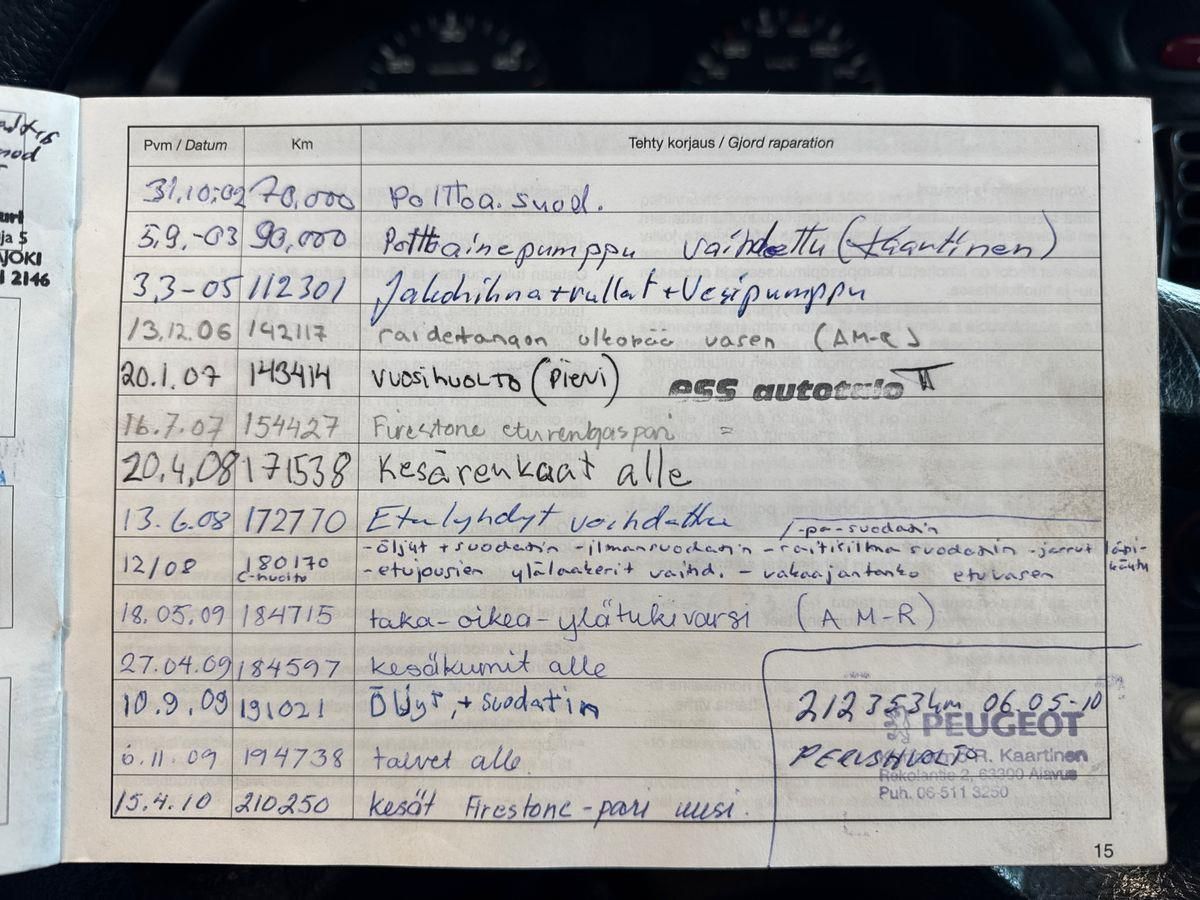 Pvm / Datum Km Tehty korjaus / Gjord raparation
31.10.02 70,000 Polttoa.suod.
5.9.-03 90,000 Polttoainepumppu vaihdettu (Kaartinen)
3.3-05 112301 Jakohihna+rullat+Vesipumppu
13.12.06 142117 raidetangon ulkopää vasen (AM-R)
20.1.07 143414 VUOSIHUOLTO (PIENI) ess autotalo
16.7.07 154427 Firestone eturengaspari =
20.4.08 171538 Kesärenkaat alle
13.6.08 172770 Etulyhdyt vaihdettu
/-pa-suodatin
12/08 180170 -öljyt + suodatin -ilmansuodatin -raitisilmasuodatin -jarrut läpi-
C-huolto -etujousien ylälaakerit vaihd. - vakaajantanko etuvasen käyty
18.05.09 184715 taka-oikea-ylätukivarsi (AM-R)
27.04.09 184597 kesäkumit alle
10.9.09 191021 Öljyt,+ suodatin
212353km 06.05-10
PEUGEOT
6.11.09 194738 talvet alle.
PERUSHUOLTO
R. Kaartinen
Rekolantie 2, 63300 Alavus
Puh. 06-511 3250
15.4.10 210250 kesät Firestone-pari uusi.
15
ja 5
AJOKI
2146